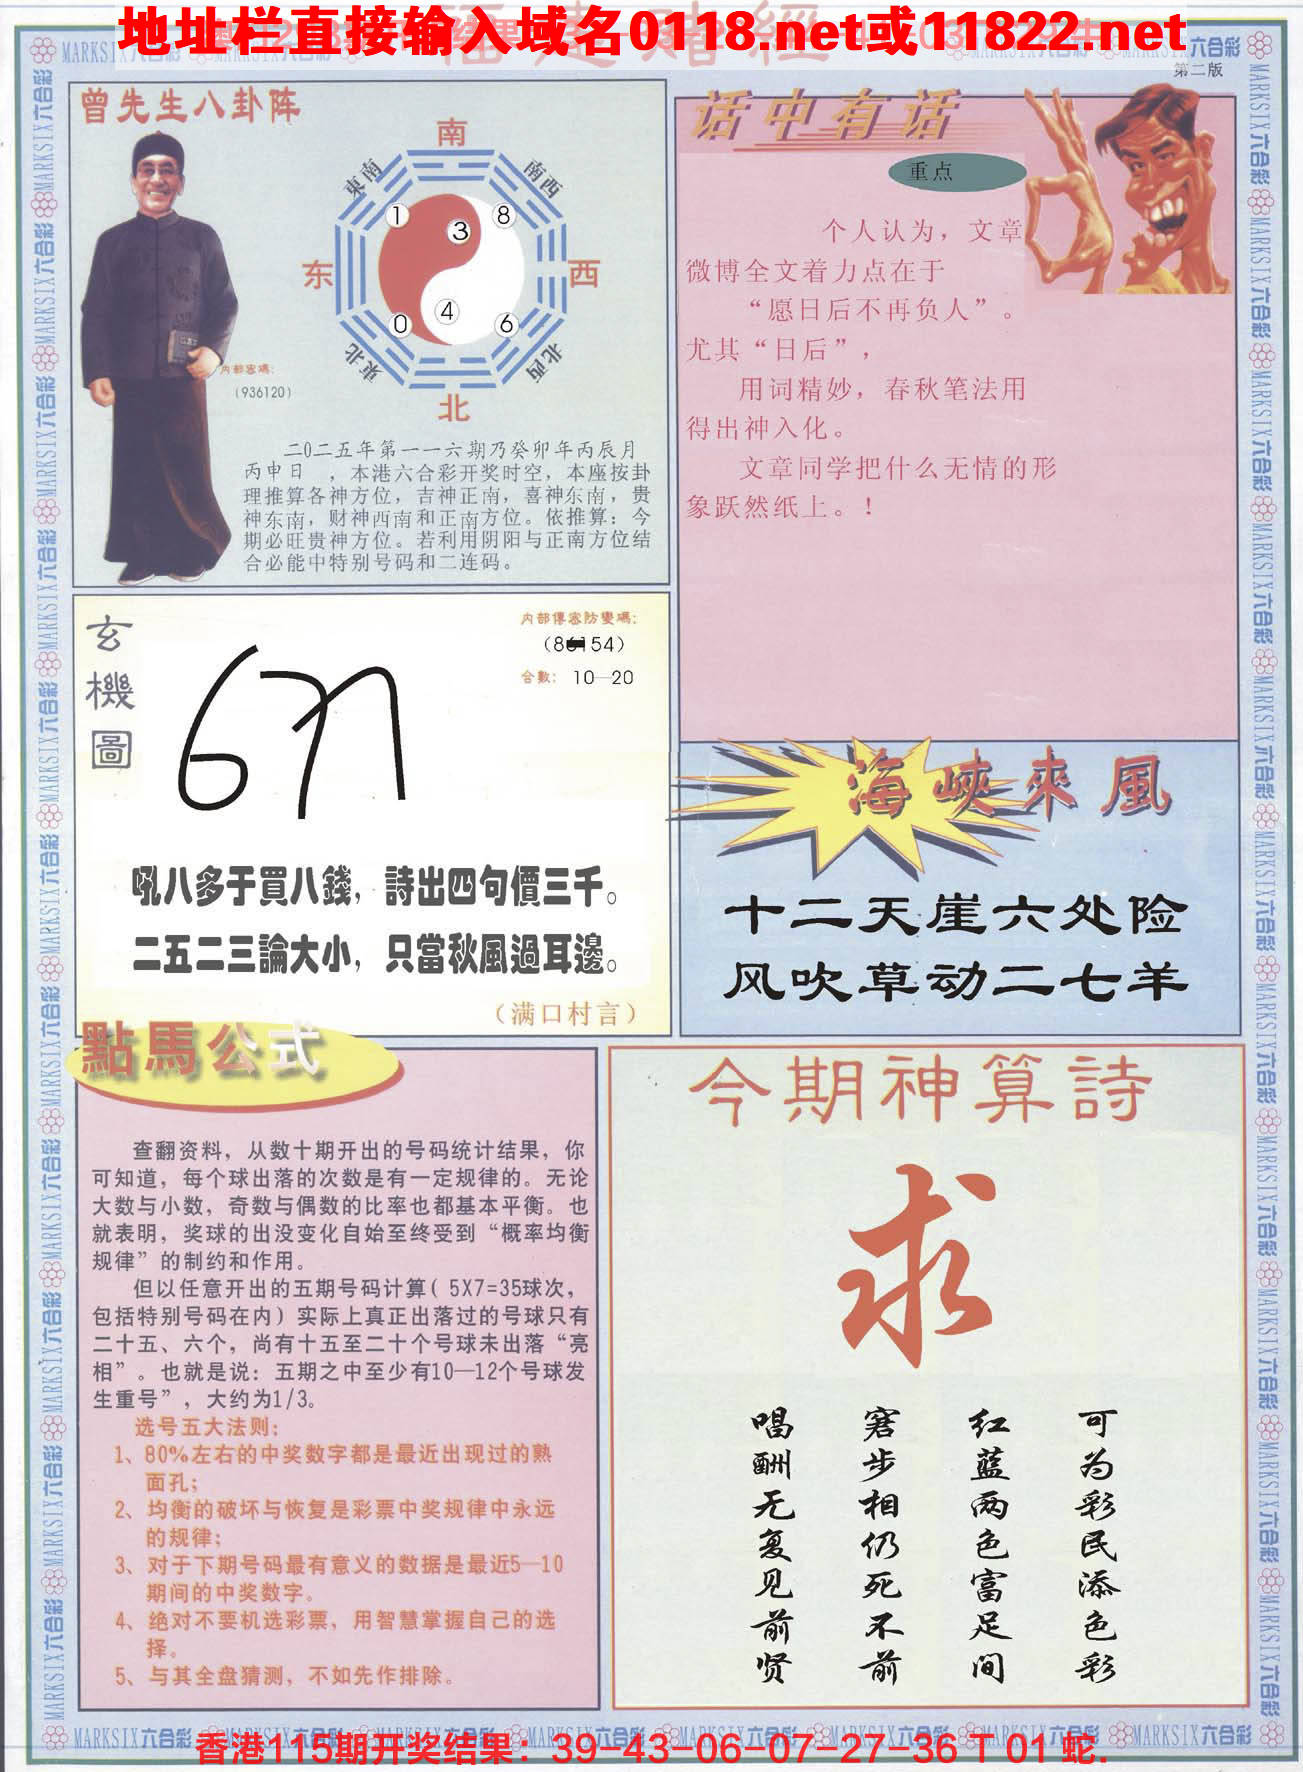 地址栏直接输入域名0118.net或11822.net
第二版
曾先生八卦阵
南
東南
南西
1
8
3
东
西
4
0
6
東北
北西
北
内部密碼：
（936120）
二O二五年第一一六期乃癸卯年丙辰月
丙申日　，本港六合彩开奖时空，本座按卦
理推算各神方位，吉神正南，喜神东南，贵
神东南，财神西南和正南方位。依推算：今
期必旺贵神方位。若利用阴阳与正南方位结
合必能中特别号码和二连码。
话中有话
重点
个人认为，文章
微博全文着力点在于
“愿日后不再负人”。
尤其“日后”，
用词精妙，春秋笔法用
得出神入化。
文章同学把什么无情的形
象跃然纸上。！
玄機圖
内部傳密防變碼：
合數： 10—20
吼八多于買八錢，詩出四句價三千。
二五二三論大小，只當秋風過耳邊。
（满口村言）
海峽來風
十二天崖六处险
风吹草动二七羊
點馬公式
查翻资料，从数十期开出的号码统计结果，你
可知道，每个球出落的次数是有一定规律的。无论
大数与小数，奇数与偶数的比率也都基本平衡。也
就表明，奖球的出没变化自始至终受到“概率均衡
规律”的制约和作用。
但以任意开出的五期号码计算（5X7=35球次，
包括特别号码在内）实际上真正出落过的号球只有
二十五、六个，尚有十五至二十个号球未出落“亮
相”。也就是说：五期之中至少有10—12个号球发
生重号”，大约为1/3。
选号五大法则：
1、80%左右的中奖数字都是最近出现过的熟
面孔；
2、均衡的破坏与恢复是彩票中奖规律中永远
的规律；
3、对于下期号码最有意义的数据是最近5—10
期间的中奖数字。
4、绝对不要机选彩票，用智慧掌握自己的选
择。
5、与其全盘猜测，不如先作排除。
今期神算詩
求
可为彩民添色彩
红蓝两色富足间
窘步相仍死不前
唱酬无复见前贤
MARKSIX六合彩
香港115期开奖结果：39-43-06-07-27-36 T 01 蛇.